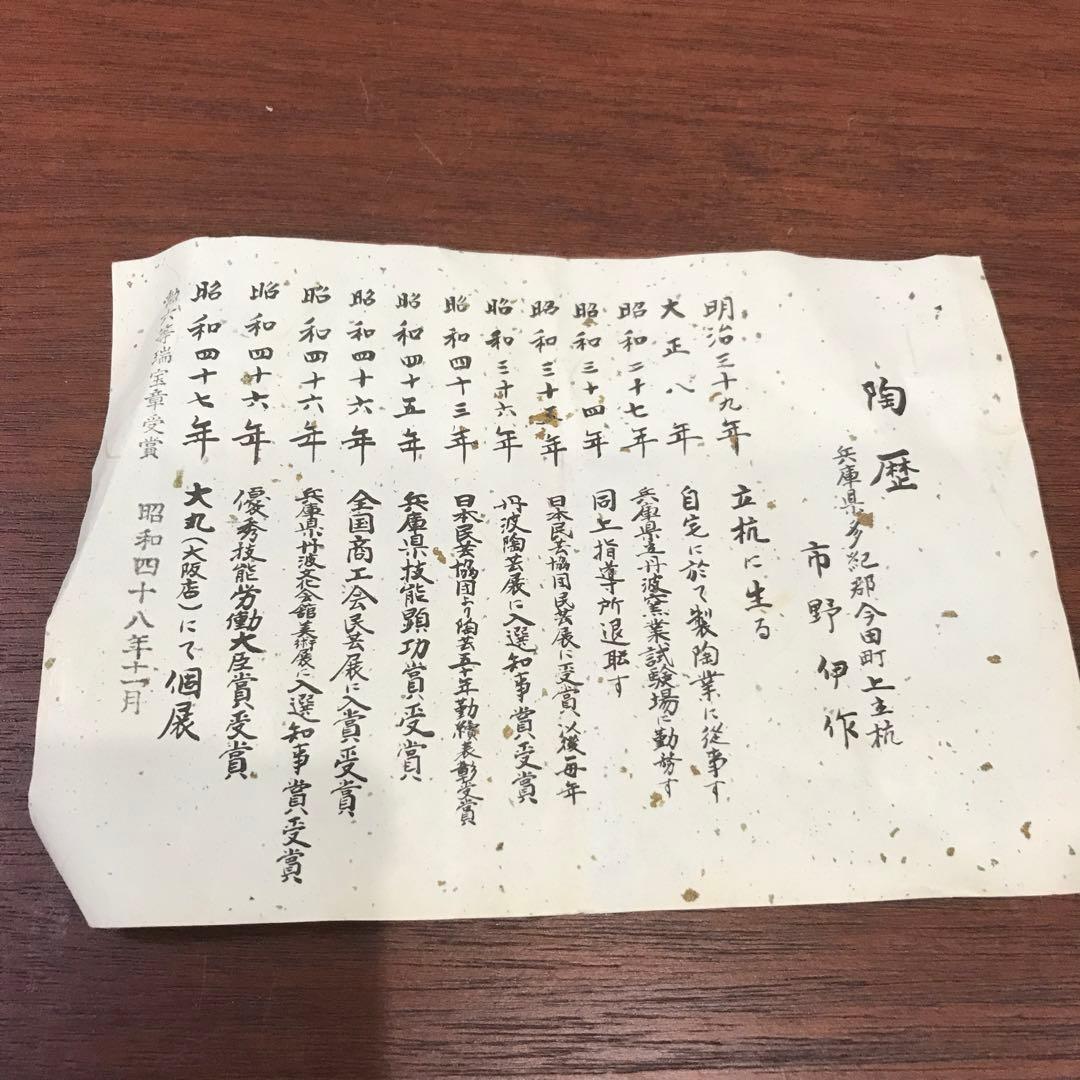 陶歴
兵庫県多紀郡今田町上立杭
市野伊作
明治三十九年 立杭に生る
大正八年 自宅に於て製陶業に従事す
昭和二十七年 兵庫県立丹波窯業試験場に勤務す
昭和三十四年 同上指導所退職す
昭和三十五年 日本民芸協団民芸展に受賞以後毎年
昭和三十六年 丹波陶芸展に入選知事賞受賞
昭和四十三年 日本民芸協団より陶芸五十年勤続表彰受賞
昭和四十五年 兵庫県技能顕功賞受賞
昭和四十六年 全国商工会民芸展に入賞受賞
昭和四十六年 兵庫県丹波文化会館美術展に入選知事賞受賞
昭和四十六年 優秀技能労働大臣賞受賞
昭和四十七年 大丸(大阪店)にて個展
勲六等瑞宝章受賞 昭和四十八年十一月